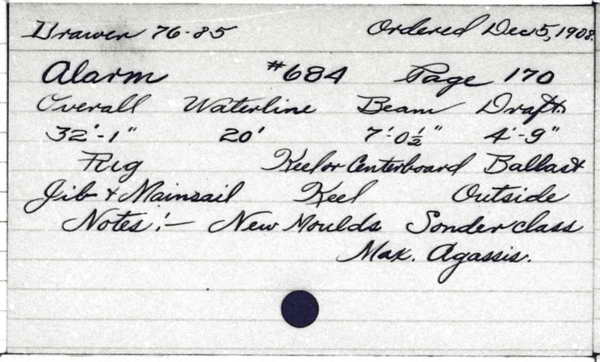 Drawer 76-85 Ordered Dec 5, 1908.
Alarm #684 Page 170
Overall Waterline Beam Draft
32'-1" 20' 7'-0½" 4'-9"
Rig Keel or Centerboard Ballast
Jib & Mainsail Keel Outside
Notes:- New Moulds Sonder class
Max. Agassis.